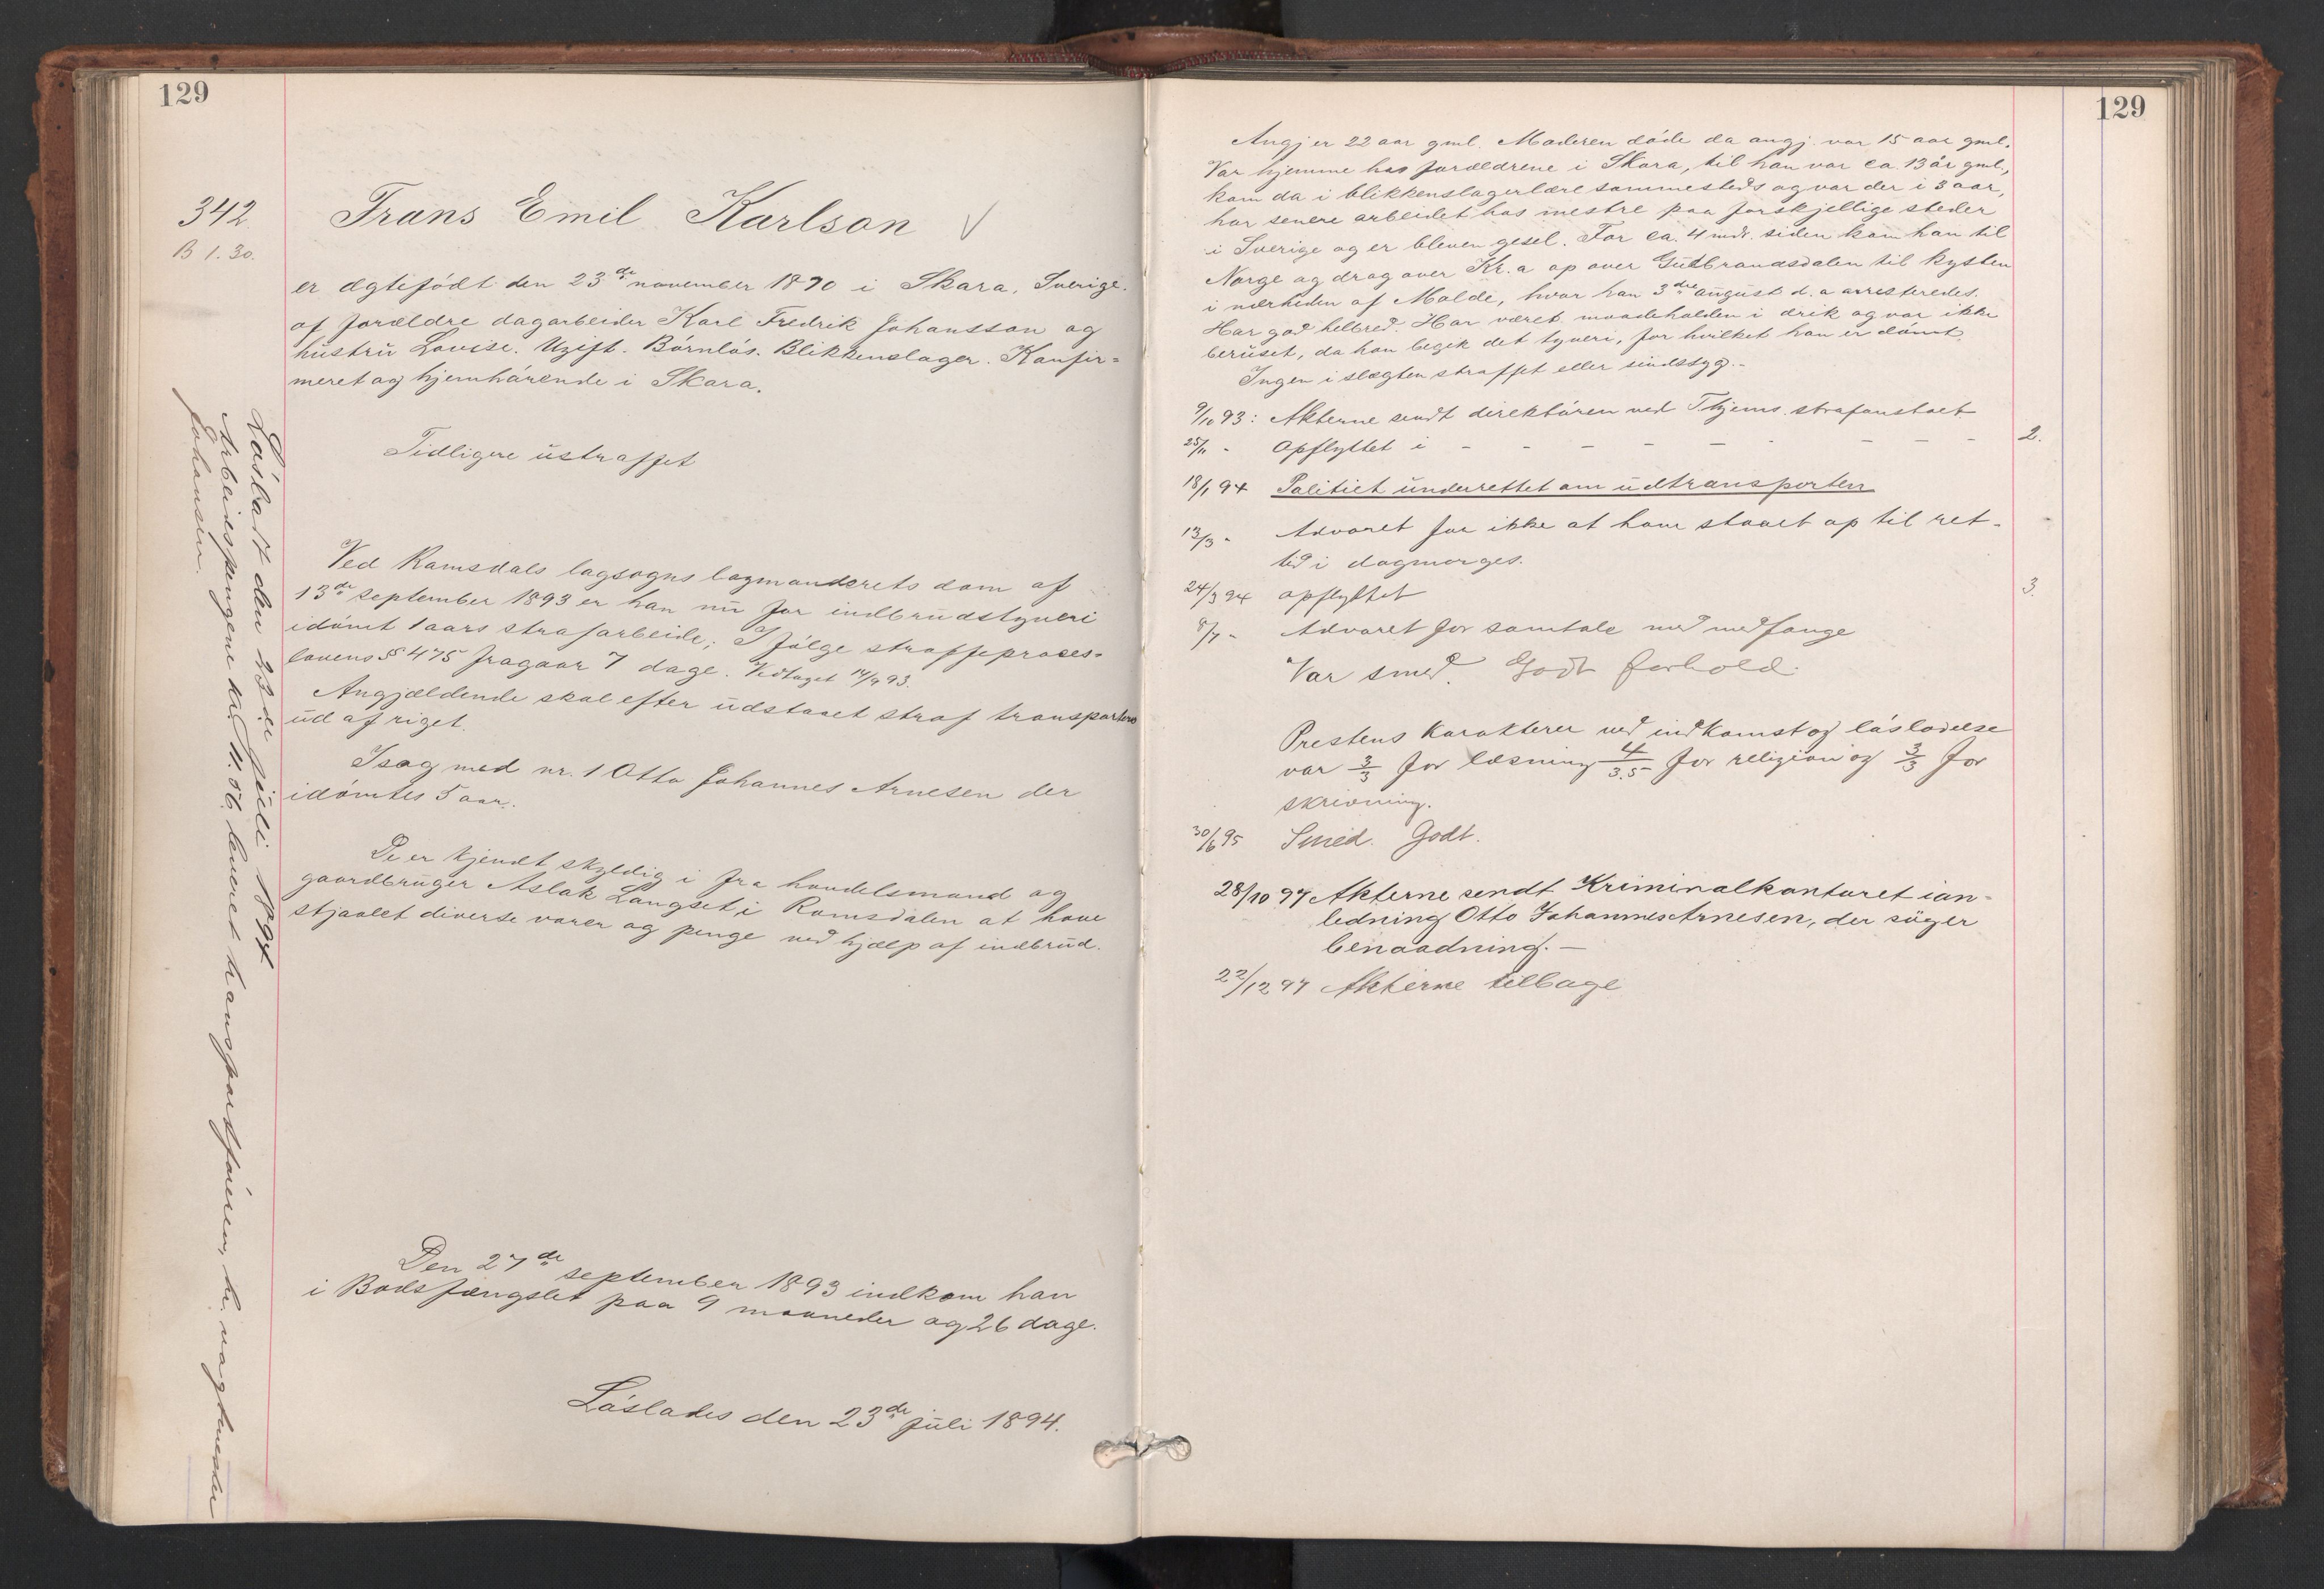 129
342
B 1. 30.
Frans Emil Karlson
er ægtefödt den 23de november 1870 i Skara, Sverige.
af forældre dagarbeider Karl Fredrik Johansson og
hustru Lovise. Ugift. Börnlös. Blikkenslager. Konfir=
meret og hjemhörende i Skara.
Tidligere ustraffet
Ved Romsdals lagsogns lagmandsrets dom af
13de september 1893 er han nu for indbrudstyveri
idömt 1 aars strafarbeide; I fölge straffeproces=
lovens § 475 fragaar 7 dage. Vedtaget 14/9 93.
Angjældende skal efter udstaaet straf transporteres
ud af riget.
I sag med nr. 1 Otto Johannes Arnesen der
idömtes 5 aar.
De er kjendt skyldig i fra handelsmand og
gaardbruger Aslak Langset i Romsdalen at have
stjaalet diverse varer og penge ved hjælp af indbrud.
Den 27de september 1893 indkom han
i Bodsfængslet paa 9 maaneder og 26 dage.
Löslades den 23de juli 1894.
Lösladt den 23de juli 1894
Arbeidspengene kr. 11.06 leveret transportføreren, hr. vagtmester
Johansen.
129
Angj er 22 aar gml. Moderen döde da angj. var 15 aar gml.
Var hjemme hos forældrene i Skara, til han var ca. 13 år gml.,
kom da i blikkenslagerlære sammesteds og var der i 3 aar,
har senere arbeidet hos mestre paa forskjellige steder
i Sverige og er bleven gesel. For ca. 4 mdr. siden kom han til
Norge og drog over Kr.a op over Gudbrandsdalen til kysten
i nærheden af Molde, hvor han 3die august d. a arresteredes.
Har god helbred. Har været maadeholden i drik og var ikke
beruset, da han begik det tyveri, for hvilket han er dömt.
Ingen i slægten straffet eller sindssyg.-
9/10 93: Akterne sendt direktören ved T.hjems. strafanstalt
25/11 - Opflyttet i - - - - - - - - 2.
18/1 94 Politiet underrettet om udtransporten
12/3 - Advaret for ikke at have staaet op til ret-
tid i dagmorges.
24/3 94 opflyttet 3.
8/7 - Advaret for samtale med medfange
Var smed. Godt forhold.
Prestens karakterer ved indkomst og löslodelse
var 3/3 for læsning 4/3.5 for religion og 3/3 for
skrivning.
30/6 95 Smed. Godt.
28/10 97 Akterne sendt Kriminalkontoret i an=
ledning Otto Johannes Arnesen, der söger
benaadning. —
22/12 97 Akterne tilbage